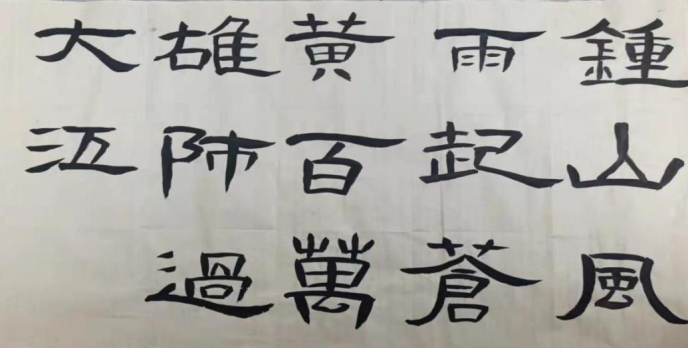 鍾山風
雨起蒼
黄百萬
雄師過
大江